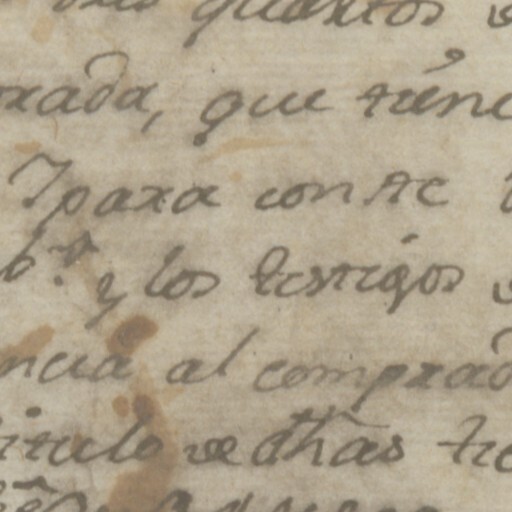 quartos
rada, que tiene
Y para conste
y los testigos
ncia al comprad
titulo de dhas tie